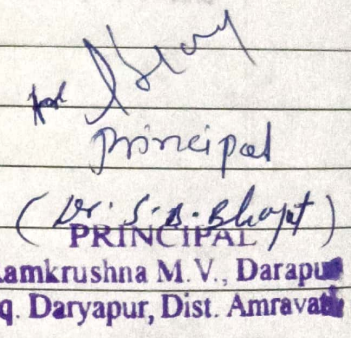 Principal
(Dr. S.B. Bhojet)
PRINCIPAL
amkrushna M.V., Darapur
q. Daryapur, Dist. Amravati